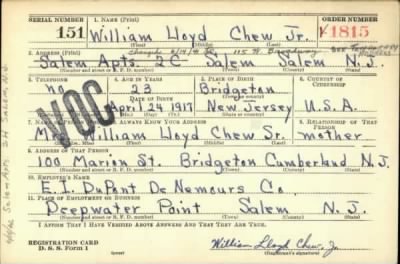 SERIAL NUMBER 1. NAME (Print) ORDER NUMBER
151 William Lloyd Chew Jr. V1815
(First) (Middle) (Last)
2. ADDRESS (Print)
115 W. Broadway
Salem Apts. 2C Salem Salem N.J.
(Number and street or R. F. D. number) (Town) (County) (State)
3. TELEPHONE 4. AGE IN YEARS 5. PLACE OF BIRTH 6. COUNTRY OF CITIZENSHIP
no 23 Bridgeton
DATE OF BIRTH
April 24 1917 New Jersey U.S.A.
NOC
7. NAME OF PERSON WHO WILL ALWAYS KNOW YOUR ADDRESS 8. RELATIONSHIP OF THAT PERSON
Mrs. William Lloyd Chew Sr. mother
9. ADDRESS OF THAT PERSON
100 Marion St. Bridgeton Cumberland N.J.
(Number and street or R. F. D. number) (Town) (County) (State)
10. EMPLOYER'S NAME
E.I. DuPont De Nemours Co.
11. PLACE OF EMPLOYMENT OR BUSINESS
Deepwater Point Salem N.J.
(Number and street or R. F. D. number) (Town) (County) (State)
I AFFIRM THAT I HAVE VERIFIED ABOVE ANSWERS AND THAT THEY ARE TRUE.
REGISTRATION CARD
D. S. S. Form 1 (over) William Lloyd Chew, Jr.
(Registrant's signature)
Salem Apts. 2H Salem, N.J.